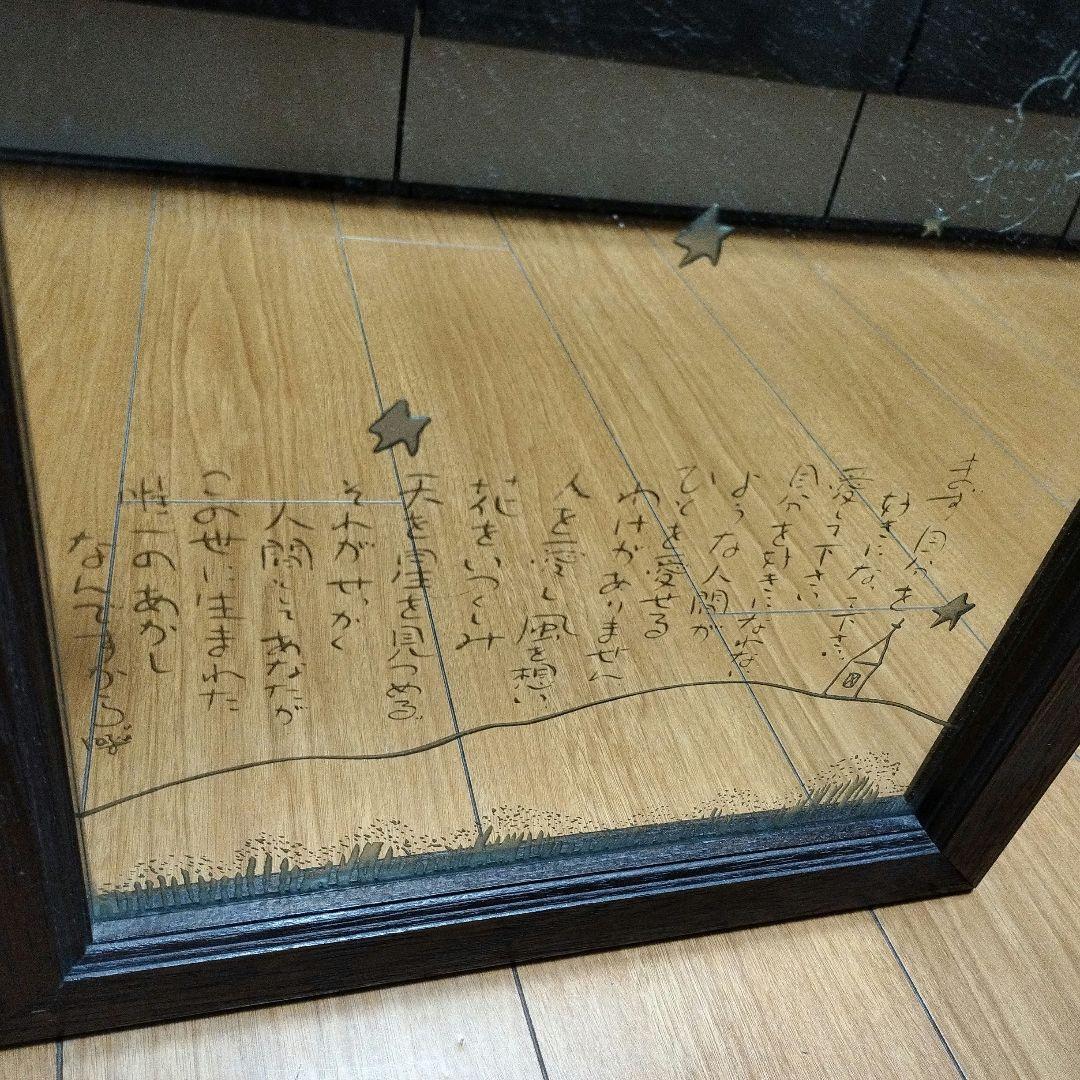 まず
自分を
好きになって下さい。
愛して下さい
自分を好きになれない
ような人間が
ひとを愛せる
わけがありません
人を愛し風を想い
花をいつくしみ
天を星を見つめる。
それがせっかく
人間としてあなたが
この世に生まれた
生のあかし
なんですから